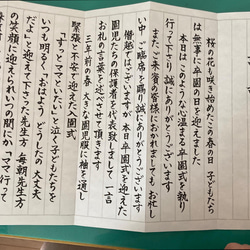 桜の花が咲き始めたこの春の日 子どもたち
は無事に卒園の日を迎えました
本日はこのような心温まる卒園式を執り
行って下さり誠にありがとうございます
またご来賓の皆様におかれましても お忙し
い中 ご臨席を賜り誠にありがとうございます
僭越ではございますが 本日卒園式を迎えた
園児たちの保護者を代表致しまして 一言
お礼の言葉を述べさせて頂きます
三年前の春 大きな園児服に袖を通し
緊張と不安で迎えた入園式
「ずっとママといたい」と泣く子どもたちを
いつも明るく「おはよう どうしたの 大丈夫
だよ」と迎えて下さった先生方 毎朝先生方
の笑顔に迎えられ いつの間にか「ママ行って